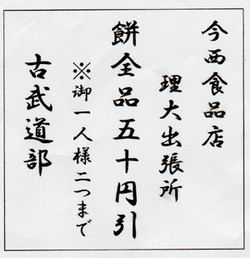 今西食品店
理大出張所
餅全品五十円引
※御一人様二つまで
古武道部